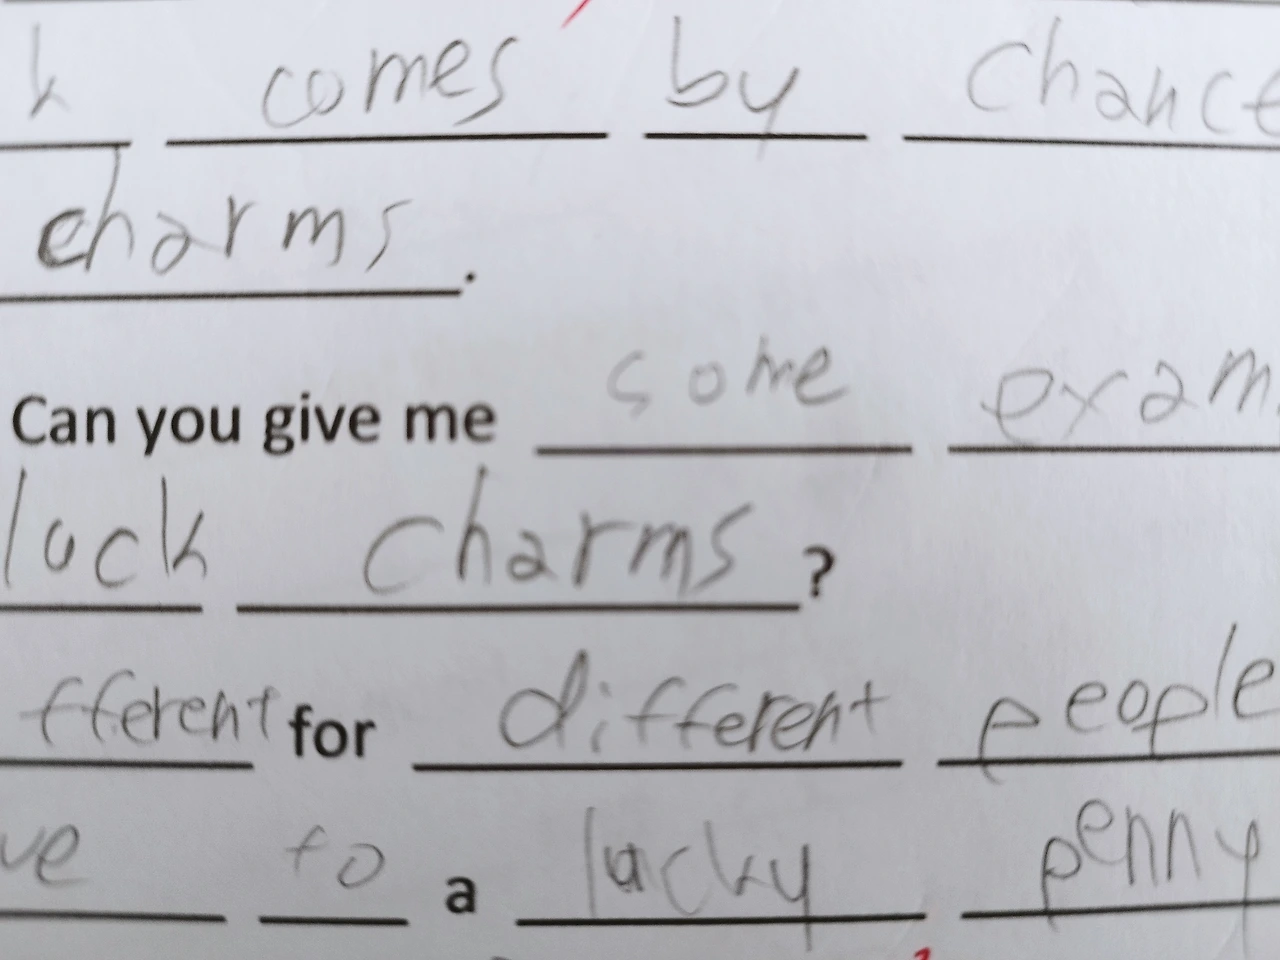 k comes by chance
charms.
Can you give me some exam
luck charms?
fferent for different people
ve to a lucky penny